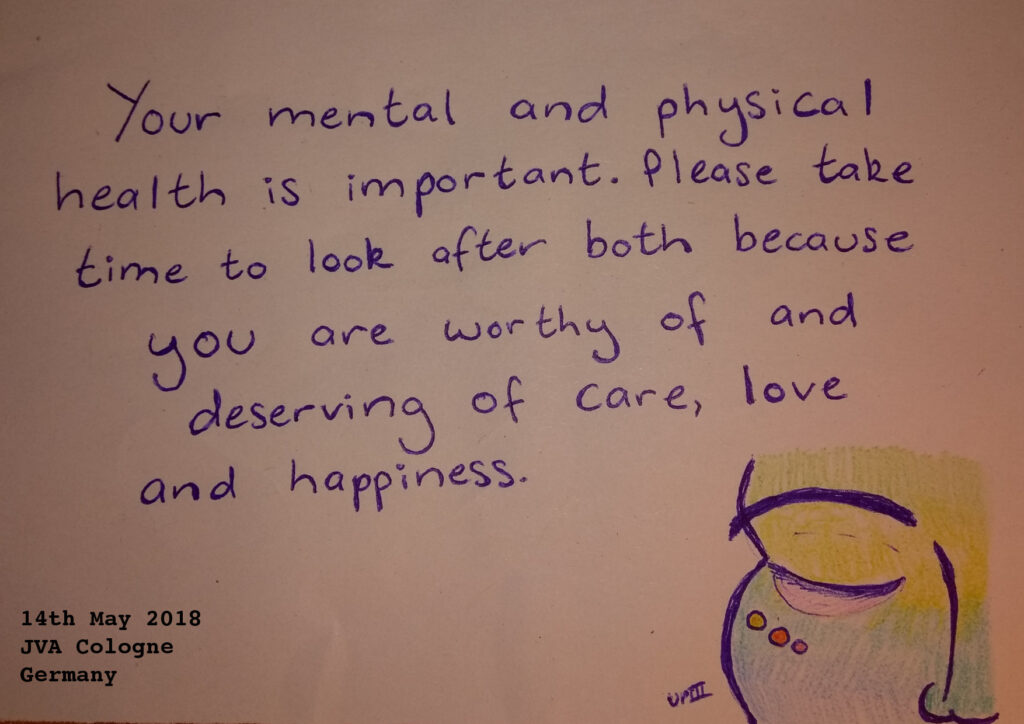 Your mental and physical
health is important. Please take
time to look after both because
you are worthy of and
deserving of care, love
and happiness.
14th May 2018
JVA Cologne
Germany
UPIII